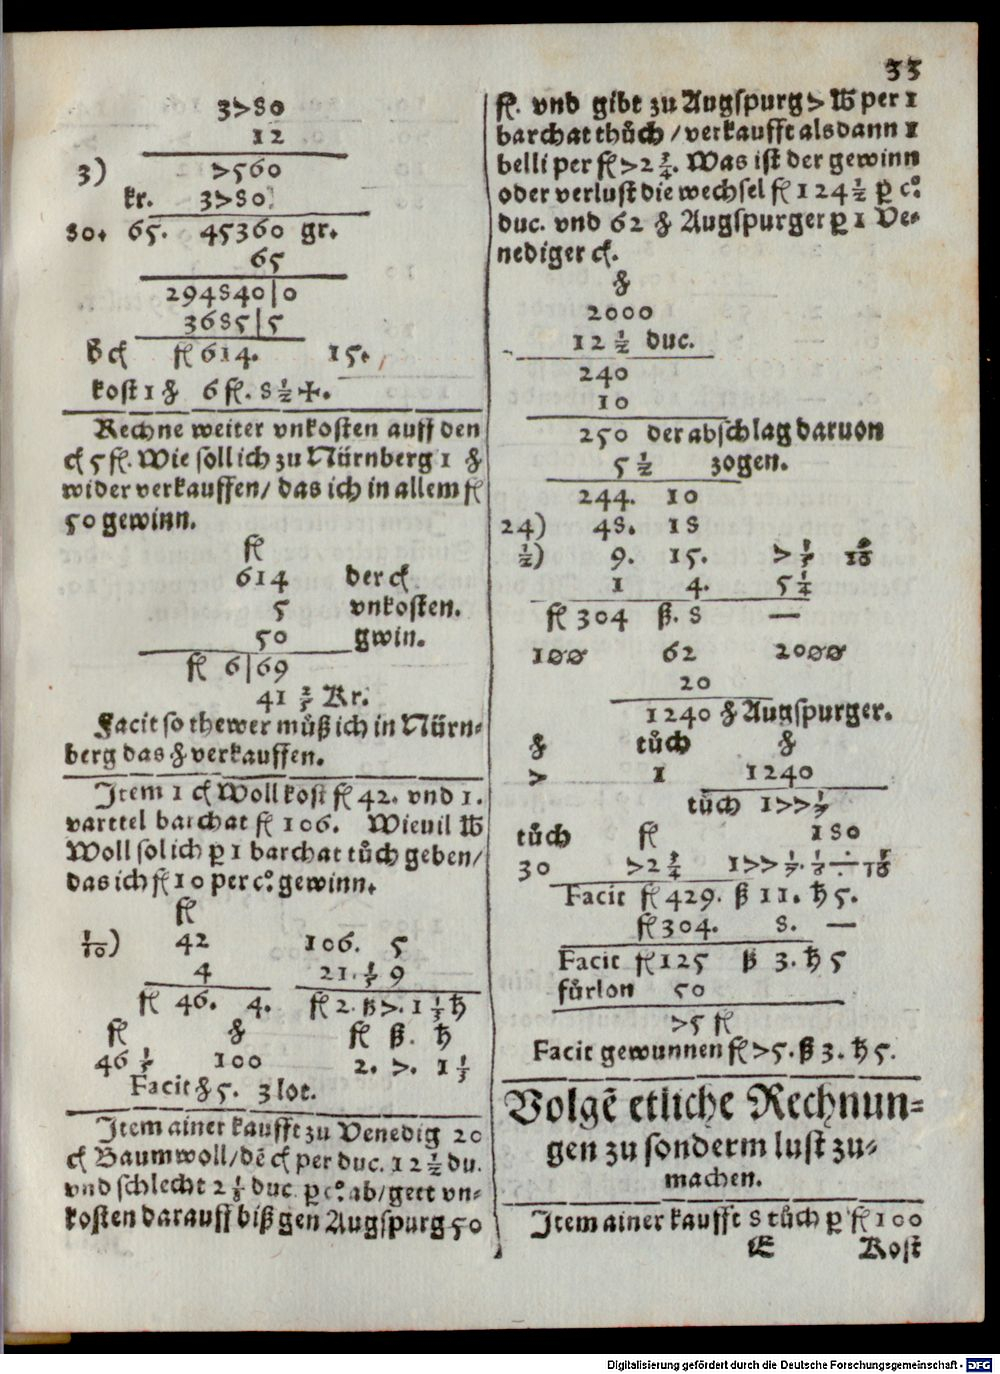 33
3780
12
3) 7560
kr. 3780
80. 65. 45360 gr.
65
294840|0
3685|5
ck fl 614. 15.
kost 1 ℔ 6 fl. 8 1/2 +.
Rechne weiter vnkosten auff den
ck 5 fl. Wie soll ich zu Nürnberg 1 ℔
wider verkauffen/ das ich in allem fl
50 gewinn.
fl
614 der ck.
5 vnkosten.
50 gwin.
fl 6|69
41 2/5 Kr.
Facit so thewer müß ich in Nürn-
berg das ℔ verkauffen.
Item 1 ck Woll kost fl 42. vnd 1.
varttel barchat fl 106. Wieuil ℔
Woll sol ich p 1 barchat tůch geben/
das ich fl 10 per cº gewinn.
fl
1/10) 42 106. 5
4 21. 1/5 9
fl 46. 4. fl 2. ß 7. 1 1/5 ₰
fl ℔ fl ß. ₰
46 1/5 100 2. 7. 1 1/5
Facit ℔ 5. 3 lot.
Item ainer kaufft zu Venedig 20
ck Baumwoll/ dē ck per duc. 12 1/2 du.
vnd schlecht 2 1/2 duc. p cº ab/ geet vn-
kosten darauff biß gen Augspurg 50
fl. vnd gibt zu Augspurg 7 ℔ per 1
barchat thůch/ verkaufft alsdann 1
belli per fl 72 3/4. Was ist der gewinn
oder verlust die wechsel fl 124 1/2 p cº
duc. vnd 62 ℔ Augspurger p 1 Ve-
nediger ck.
℔
2000
12 1/2 duc.
240
10
250 der abschlag daruon
5 1/2 zogen.
244. 10
24) 48. 18
1/2) 9. 15. 7 1/5
1 4. 5 1/4
fl 304 ß. 8 —
100 62 2000
20
1240 ℔ Augspurger.
℔ tůch ℔
7 1 1240
tůch 177 1/7
tůch fl 180
30 72 3/4 177 1/7.
Facit fl 429. ß 11. ₰ 5.
fl 304. 8. —
Facit fl 125 ß 3. ₰ 5
fůrlon 50
75 fl
Facit gewunnen fl 75. ß 3. ₰ 5.
Volgē etliche Rechnun-
gen zu sonderm lust zu-
machen.
Item ainer kaufft 8 tůch p fl 100
E Kost
Digitalisierung gefördert durch die Deutsche Forschungsgemeinschaft - DFG